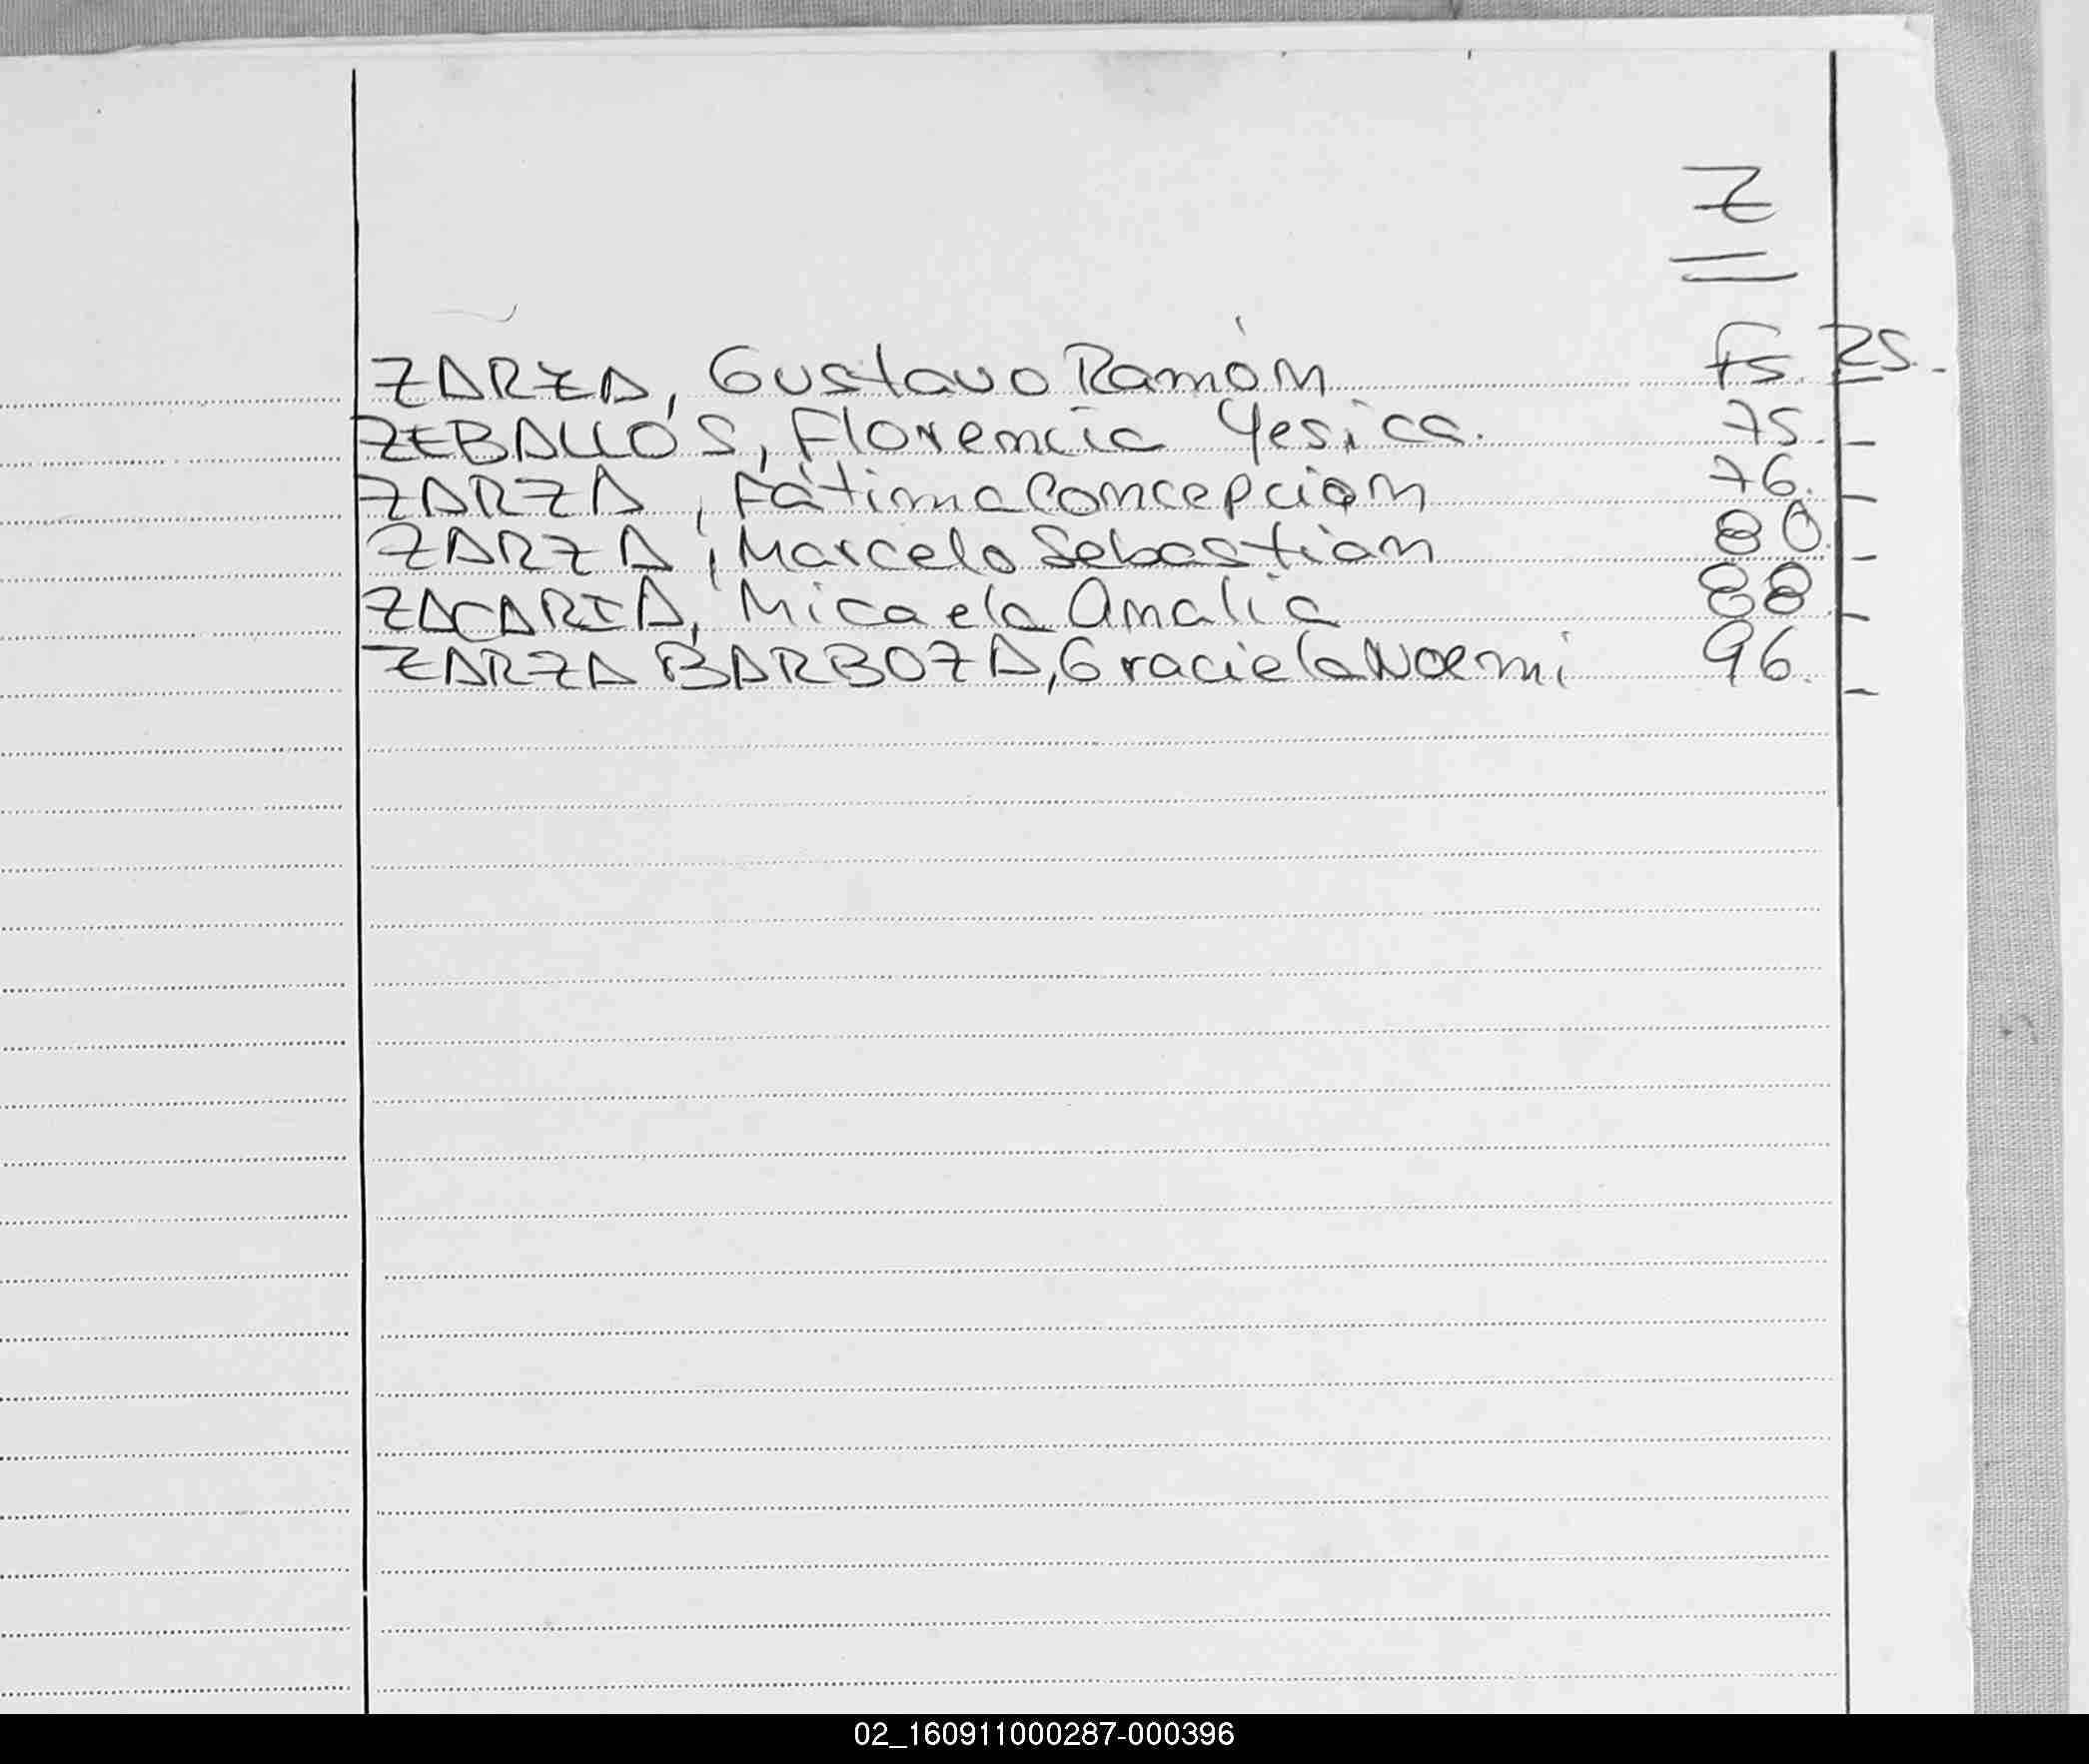 Z
ZARZA, Gustavo Ramón Fs. 25.-
ZEBALLOS, Florencia Yesica. 75.-
ZARZA, Fátima Concepción 76.-
ZARZA, Marcelo Sebastian 80.-
ZACARIA, Micaela Analia 88.-
ZARZA BARBOZA, Graciela Noemi 96.-
02_160911000287-000396